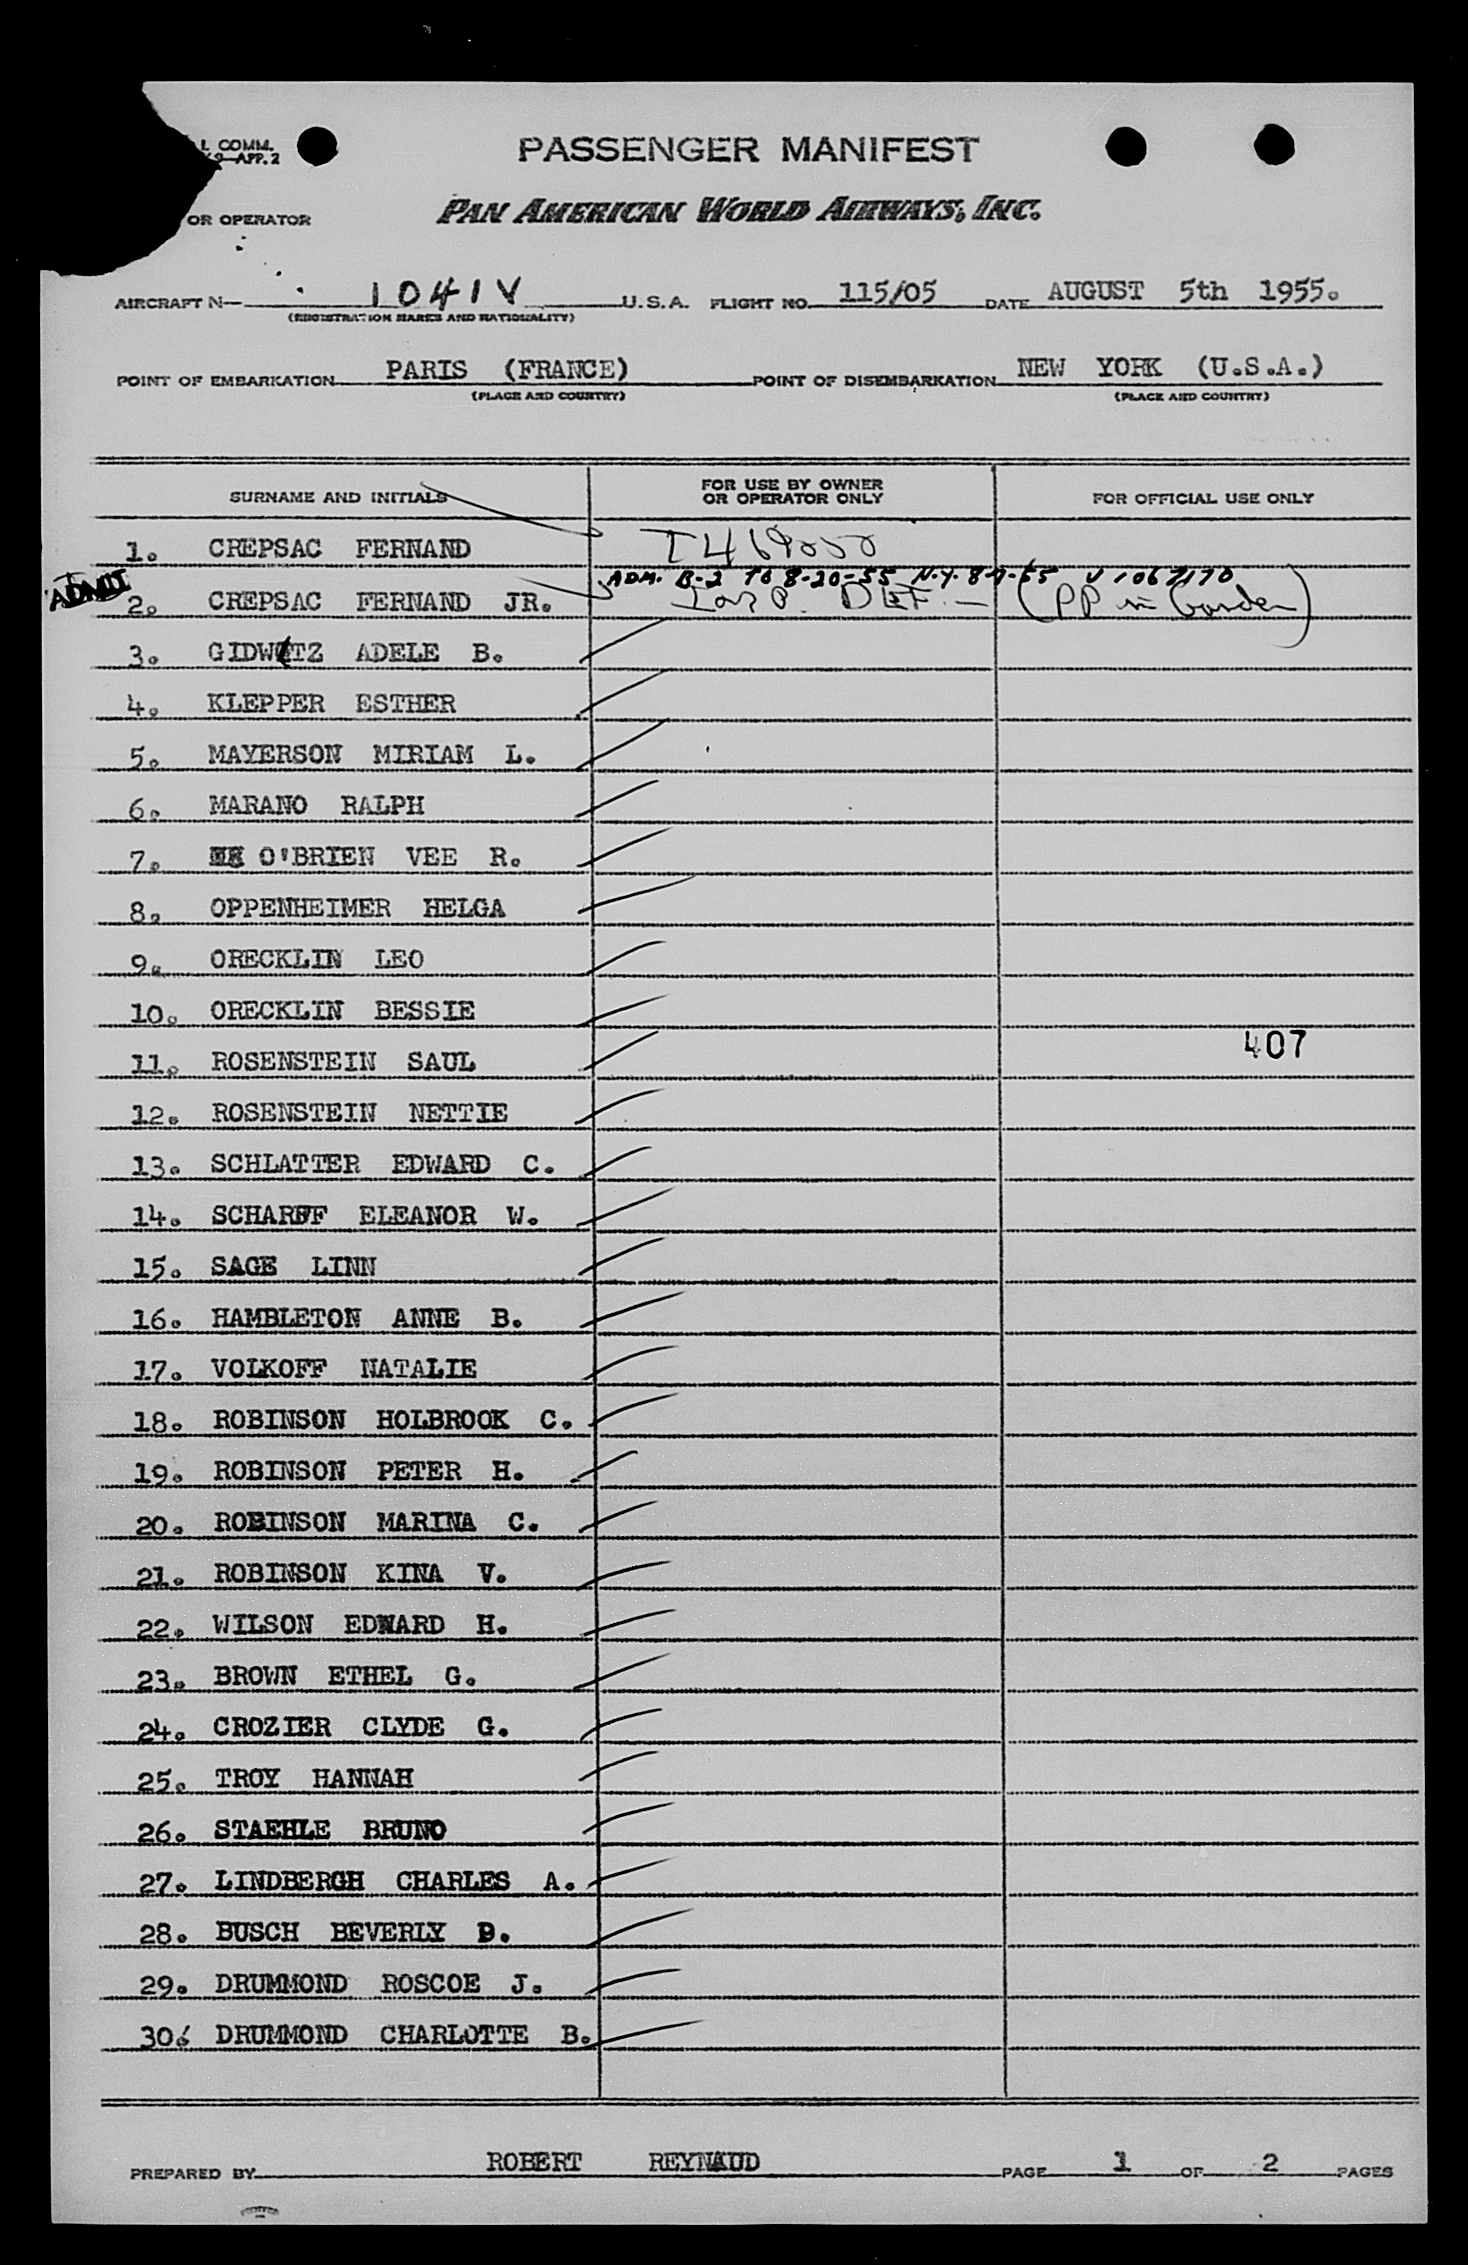 L COMM.
APP. 2
PASSENGER MANIFEST
PAN AMERICAN WORLD AIRWAYS, INC.
OR OPERATOR
AIRCRAFT N— 1041V U.S.A. FLIGHT NO. 115/05 DATE AUGUST 5th 1955.
(REGISTRATION MARKS AND NATIONALITY)
POINT OF EMBARKATION PARIS (FRANCE) POINT OF DISEMBARKATION NEW YORK (U.S.A.)
(PLACE AND COUNTRY) (PLACE AND COUNTRY)
SURNAME AND INITIALS FOR USE BY OWNER OR OPERATOR ONLY FOR OFFICIAL USE ONLY
1. CREPSAC FERNAND
ADMIT ADM. B-2 TO 8-20-55 N.Y.
2. CREPSAC FERNAND JR.
3. GIDWITZ ADELE B.
4. KLEPPER ESTHER
5. MAYERSON MIRIAM L.
6. MARANO RALPH
7. O'BRIEN VEE R.
8. OPPENHEIMER HELGA
9. ORECKLIN LEO
10. ORECKLIN BESSIE
407
11. ROSENSTEIN SAUL
12. ROSENSTEIN NETTIE
13. SCHLATTER EDWARD C.
14. SCHARFF ELEANOR W.
15. SAGE LINN
16. HAMBLETON ANNE B.
17. VOLKOFF NATALIE
18. ROBINSON HOLBROOK C.
19. ROBINSON PETER H.
20. ROBINSON MARINA C.
21. ROBINSON KINA V.
22. WILSON EDWARD H.
23. BROWN ETHEL G.
24. CROZIER CLYDE G.
25. TROY HANNAH
26. STAEHLE BRUNO
27. LINDBERGH CHARLES A.
28. BUSCH BEVERLY D.
29. DRUMMOND ROSCOE J.
30. DRUMMOND CHARLOTTE B.
PREPARED BY ROBERT REYNAUD PAGE 1 OF 2 PAGES